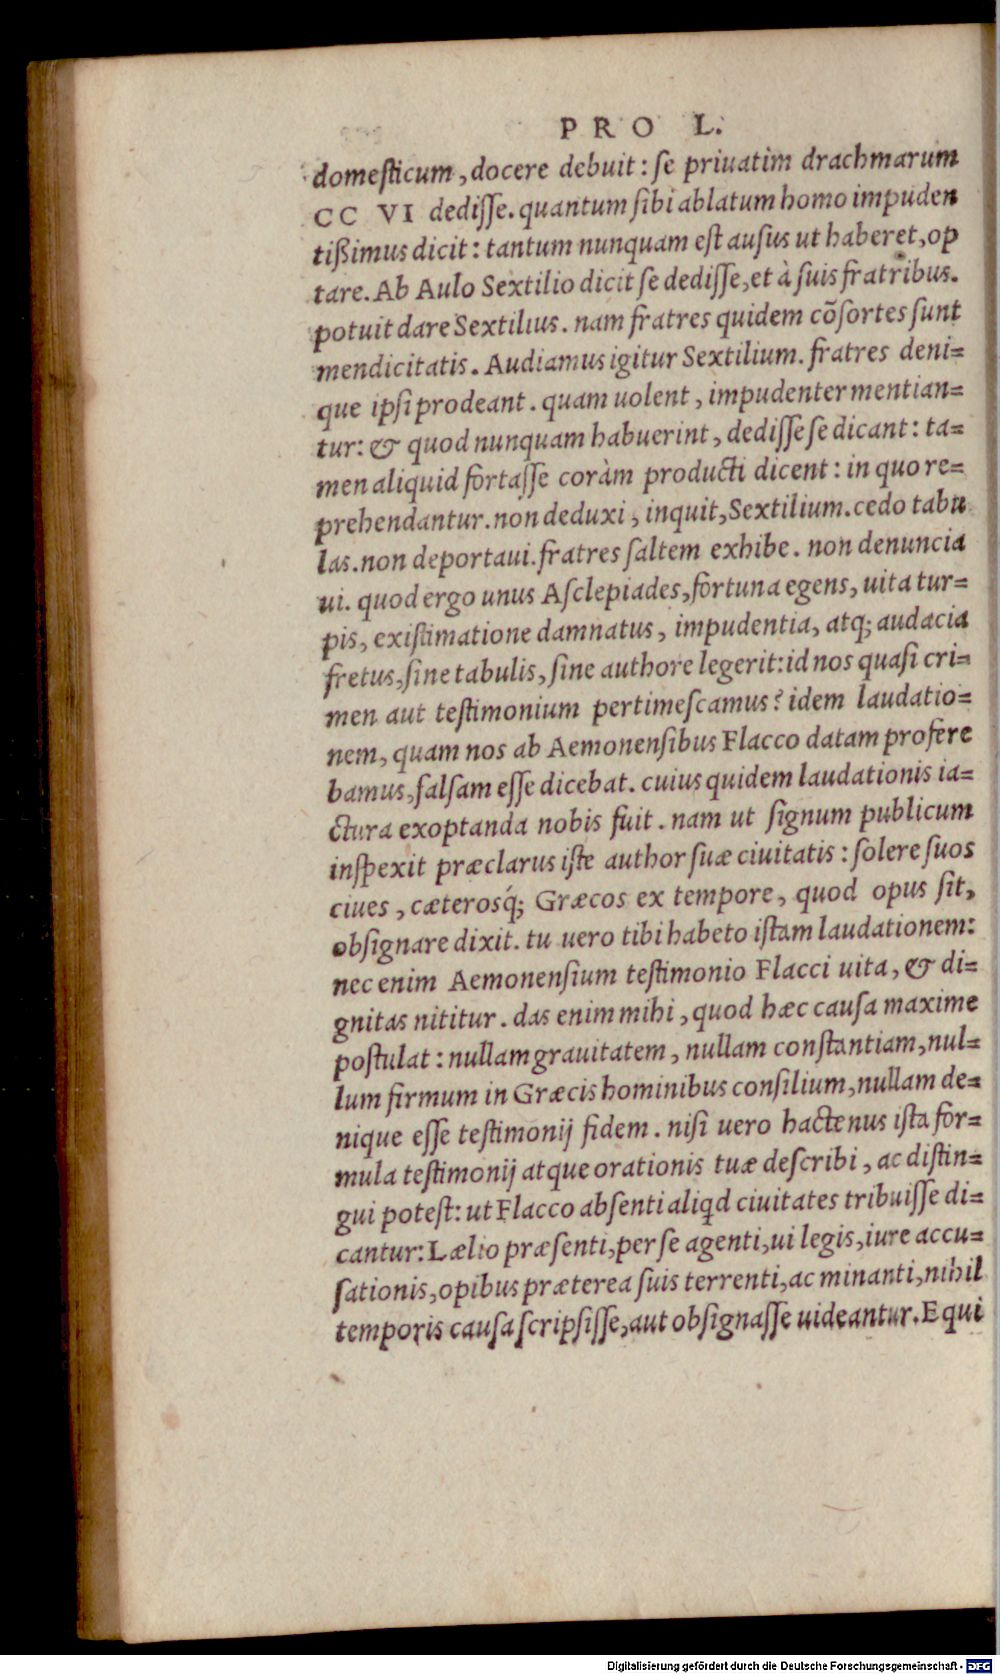 PRO L.
domesticum, docere debuit: se priuatim drachmarum
CC VI dedisse. quantum sibi ablatum homo impuden
tißimus dicit: tantum nunquam est ausus ut haberet, op
tare. Ab Aulo Sextilio dicit se dedisse, et à suis fratribus.
potuit dare Sextilius. nam fratres quidem cõsortes sunt
mendicitatis. Audiamus igitur Sextilium. fratres deni=
que ipsi prodeant. quam uolent, impudenter mentian=
tur: & quod nunquam habuerint, dedisse se dicant: ta=
men aliquid fortasse coràm producti dicent: in quo re=
prehendantur. non deduxi, inquit, Sextilium. cedo tabu
las. non deportaui. fratres saltem exhibe. non denuncia
ui. quod ergo unus Asclepiades, fortuna egens, uita tur=
pis, existimatione damnatus, impudentia, atq; audacia
fretus, sine tabulis, sine authore legerit: id nos quasi cri=
men aut testimonium pertimescamus? idem laudatio=
nem, quam nos ab Aemonensibus Flacco datam profere
bamus, falsam esse dicebat. cuius quidem laudationis ia=
ctura exoptanda nobis fuit. nam ut signum publicum
inspexit præclarus iste author suæ ciuitatis: solere suos
ciues, cæterosq́; Græcos ex tempore, quod opus sit,
obsignare dixit. tu uero tibi habeto istam laudationem:
nec enim Aemonensium testimonio Flacci uita, & di=
gnitas nititur. das enim mihi, quod hæc causa maxime
postulat: nullam grauitatem, nullam constantiam, nul=
lum firmum in Græcis hominibus consilium, nullam de=
nique esse testimonij fidem. nisi uero hactenus ista for=
mula testimonij atque orationis tuæ describi, ac distin=
gui potest: ut Flacco absenti aliq̃d ciuitates tribuisse di=
cantur: Lælio præsenti, per se agenti, ui legis, iure accu=
sationis, opibus præterea suis terrenti, ac minanti, nihil
temporis causa scripsisse, aut obsignasse uideantur. Equi
Digitalisierung gefördert durch die Deutsche Forschungsgemeinschaft - DFG